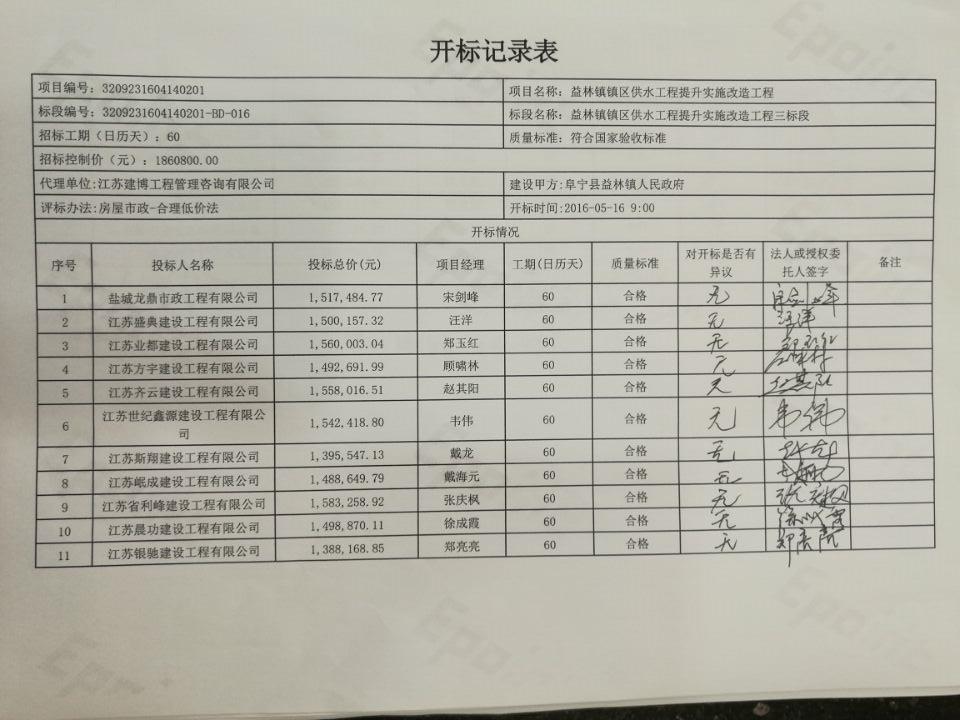 开标记录表
项目编号：3209231604140201 项目名称：益林镇镇区供水工程提升实施改造工程
标段编号：3209231604140201-BD-016 标段名称：益林镇镇区供水工程提升实施改造工程三标段
招标工期（日历天）：60 质量标准：符合国家验收标准
招标控制价（元）：1860800.00
代理单位:江苏建博工程管理咨询有限公司 建设甲方:阜宁县益林镇人民政府
评标办法:房屋市政-合理低价法 开标时间:2016-05-16 9:00
开标情况
序号 投标人名称 投标总价(元) 项目经理 工期(日历天) 质量标准 对开标是否有异议 法人或授权委托人签字 备注
1 盐城龙鼎市政工程有限公司 1,517,484.77 宋剑峰 60 合格 无 宋剑峰
2 江苏盛典建设工程有限公司 1,500,157.32 汪洋 60 合格 无 汪洋
3 江苏业都建设工程有限公司 1,560,003.04 郑玉红 60 合格 无 郑玉红
4 江苏方宇建设工程有限公司 1,492,691.99 顾啸林 60 合格 无
5 江苏齐云建设工程有限公司 1,558,016.51 赵其阳 60 合格 无
6 江苏世纪鑫源建设工程有限公司 1,542,418.80 韦伟 60 合格 无 韦伟
7 江苏斯翔建设工程有限公司 1,395,547.13 戴龙 60 合格 无
8 江苏岷成建设工程有限公司 1,488,649.79 戴海元 60 合格 无
9 江苏省利峰建设工程有限公司 1,583,258.92 张庆枫 60 合格 无
10 江苏晨功建设工程有限公司 1,498,870.11 徐成霞 60 合格 无
11 江苏银驰建设工程有限公司 1,388,168.85 郑亮亮 60 合格 无 郑亮亮